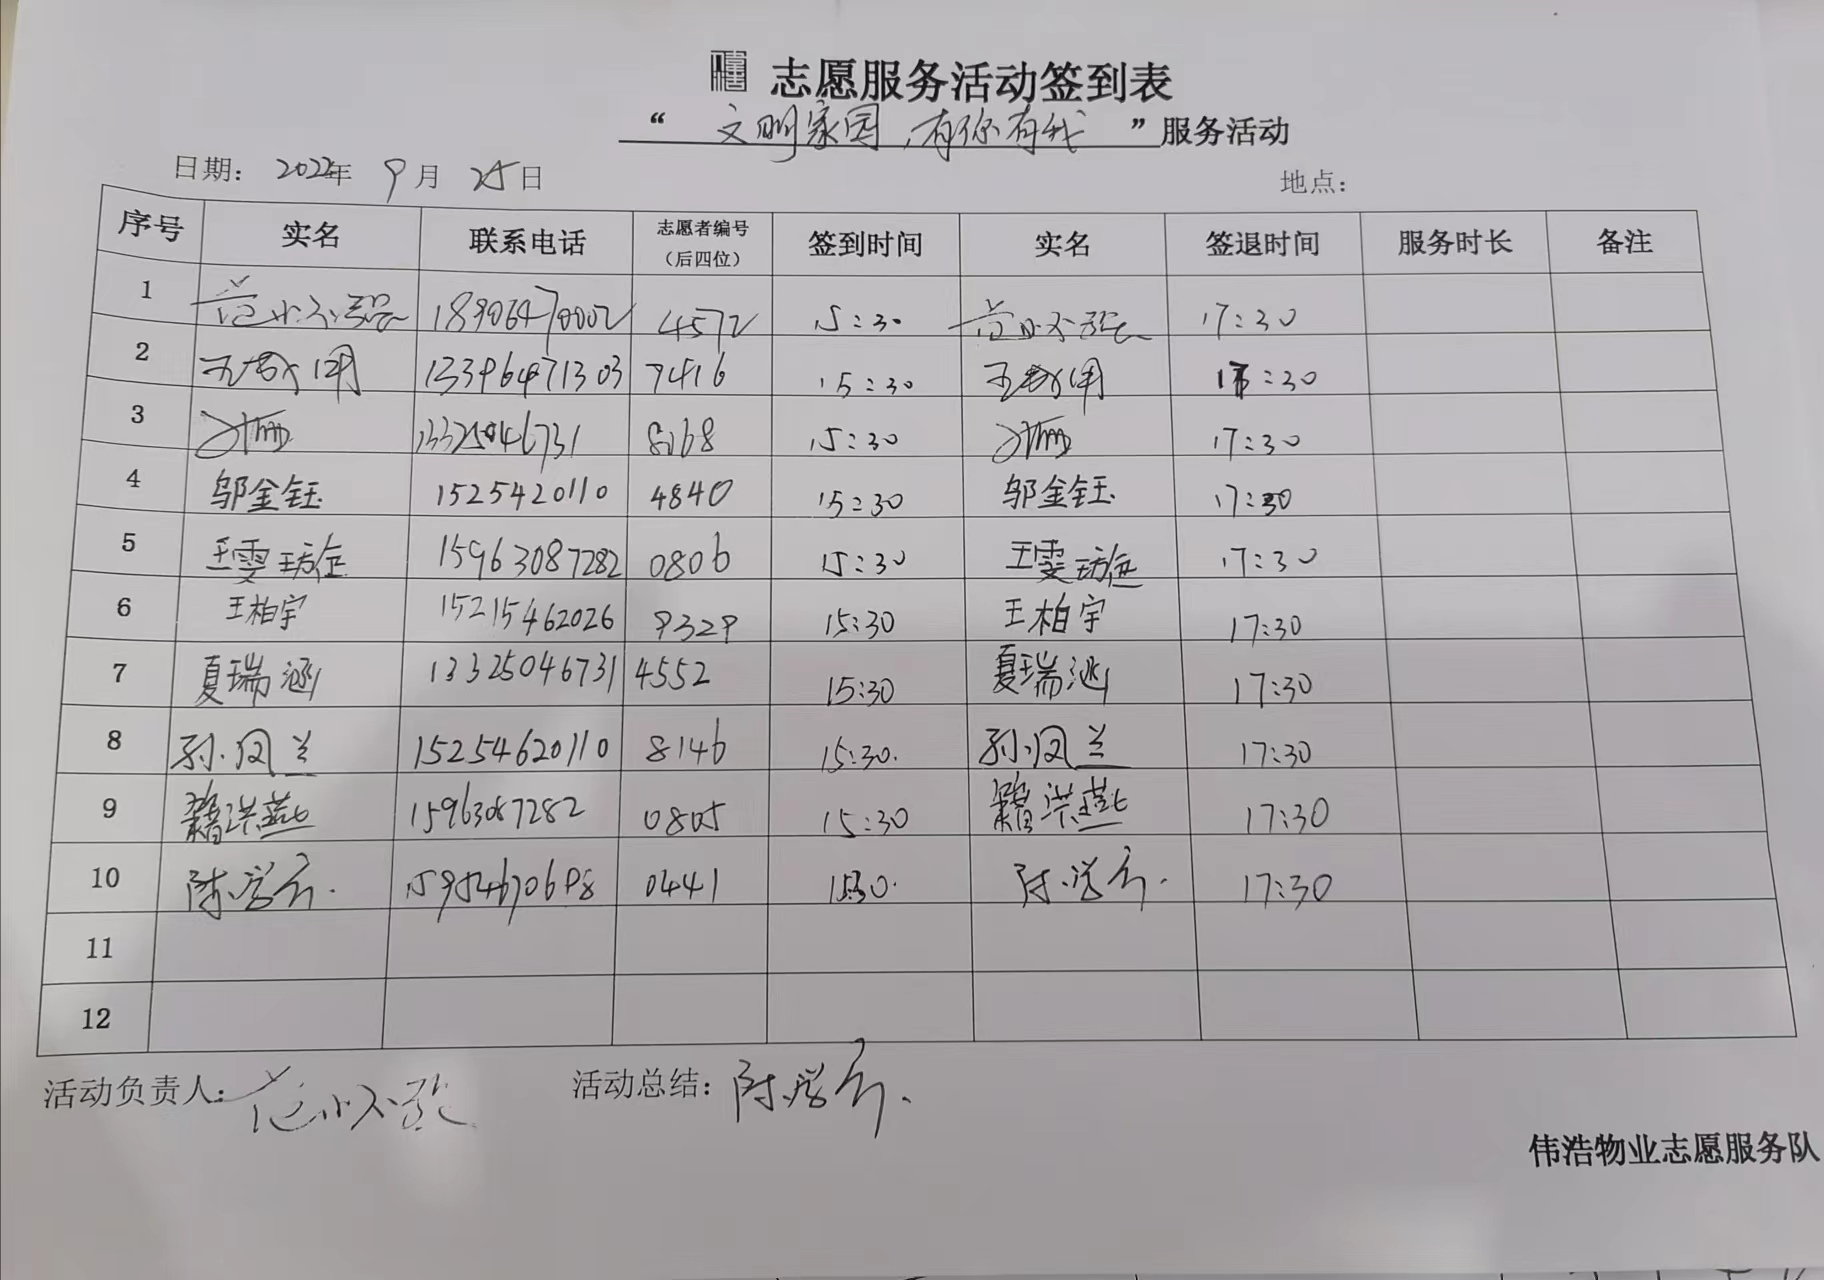 志愿服务活动签到表
“ 文明家园,有你有我 ”服务活动
日期: 2022年 9月 25日 地点:
序号 实名 联系电话 志愿者编号(后四位) 签到时间 实名 签退时间 服务时长 备注
1 4572 15:30 17:30
2 13396471303 7416 15:30 17:30
3 13325046731 8068 15:30 17:30
4 邬金钰 1525420110 4840 15:30 邬金钰 17:30
5 王雯 15963087282 0806 15:30 王雯 17:30
6 王柏宇 15215462026 9329 15:30 王柏宇 17:30
7 夏瑞涵 13325046731 4552 15:30 夏瑞涵 17:30
8 孙凤兰 15254620110 8146 15:30. 孙凤兰 17:30
9 籍洪燕 15963087282 0805 15:30 籍洪燕 17:30
10 陈学 0441 1530. 陈学 17:30
11
12
活动负责人: 活动总结: 陈学
伟浩物业志愿服务队